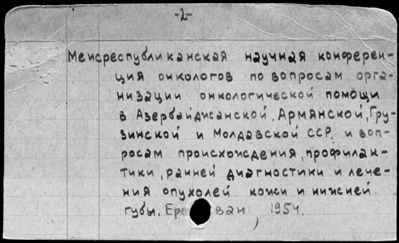 -2-
Межреспубликанская научная конферен-
ция онкологов по вопросам орга-
низации онкологической помощи
в Азербайджанской, Армянской, Гру-
зинской и Молдавской ССР и воп-
росам происхождения, профилак-
тики, ранней диагностики и лече-
ния опухолей кожи и нижней
губы. Ереван, 1954.